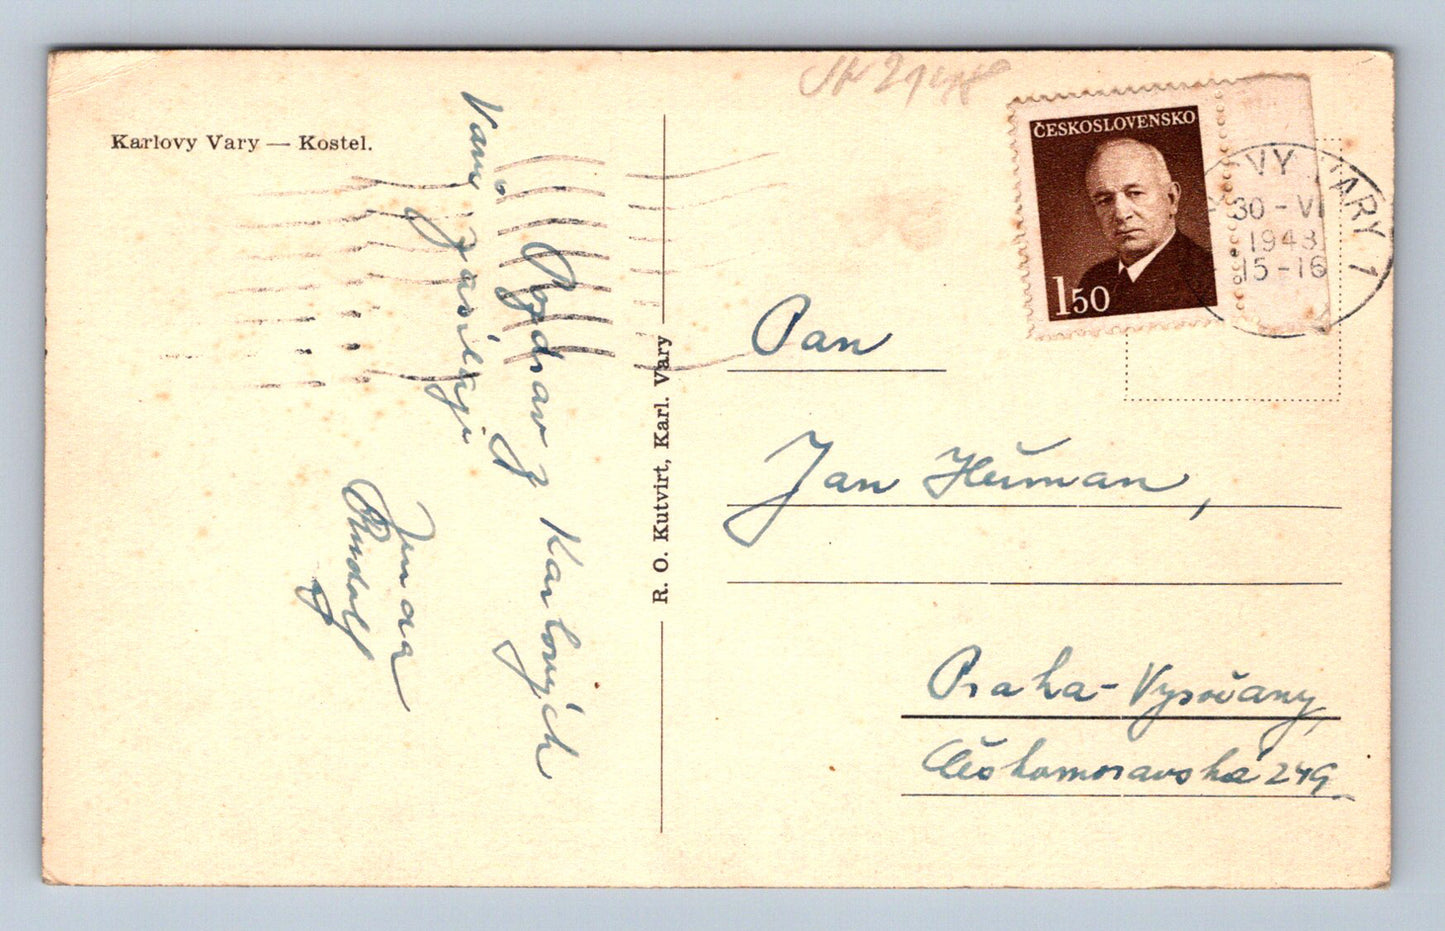 Karlovy Vary — Kostel.
Pozdrav z Karlových
Varů zasílají
Jenda
Rudolf
R. O. Kutvirt, Karl. Vary
ČESKOSLOVENSKO
1 50
VY VARY 1
30 - VI
1948
15-16
Pan
Jan Heřman,
Praha-Vysočany,
Českomoravská 249.